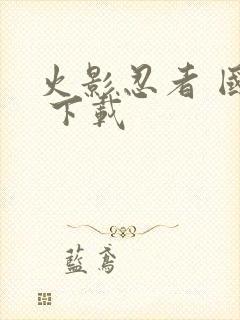 火影忍者 國
下載
藍鳶